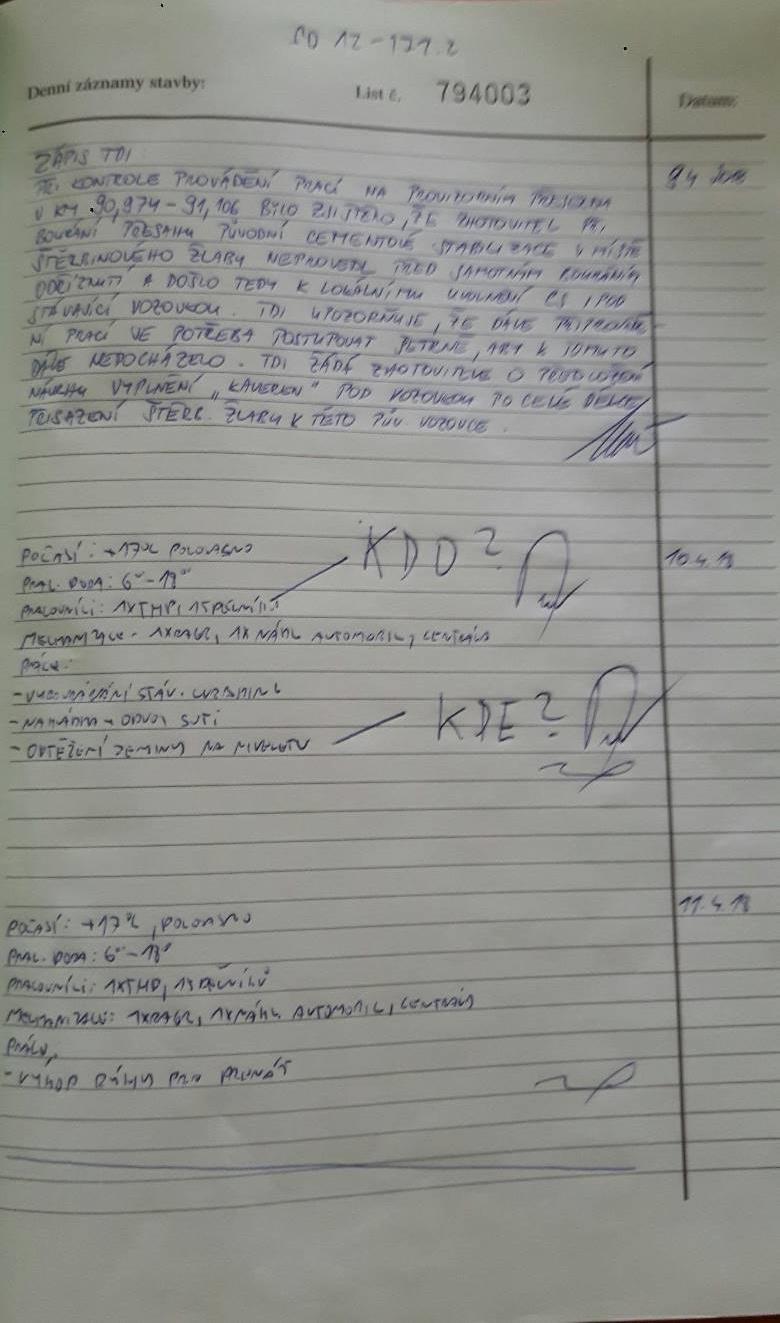 SO 12-191.2
Denní záznamy stavby:
List č. 794003
Datum:
ZÁPIS TDI
9.4. 2018
PŘI KONTROLE PROVÁDĚNÍ PRACÍ NA PROVIZORNÍM
V KM 90,974-91,106 BYLO ZJIŠTĚNO, ŽE ZHOTOVITEL PŘI
BOURÁNÍ PŘESAHU PŮVODNÍ CEMENTOVÉ STABILIZACE V MÍSTĚ
ŠTĚRBINOVÉHO ŽLABU NEPROVEDL PŘED SAMOTNÝM BOURÁNÍM
ODŘÍZNUTÍ A DOŠLO TEDY K LOKÁLNÍMU UVOLNĚNÍ CS I POD
STÁVAJÍCÍ VOZOVKOU. TDI UPOZORŇUJE, ŽE DÁLE PŘI PROVÁDĚ-
NÍ PRACÍ JE POTŘEBA POSTUPOVAT ŠETRNĚ, ABY K TOMUTO
DÁLE NEDOCHÁZELO. TDI ŽÁDÁ ZHOTOVITELE O PŘEDLOŽENÍ
NÁVRHU VYPLNĚNÍ „KAVEREN" POD VOZOVKOU PO CELÉ DÉLCE
PŘISAZENÍ ŠTĚRB. ŽLABU K TÉTO PŮV. VOZOVCE.
POČASÍ: +17°C POLOJASNO
KDO?
10.4.18
PRAC. DOBA: 6⁰⁰-18⁰⁰
PRACOVNÍCI: 1XTHP, 15 DĚLNÍKŮ
MECHANIZACE: 1XBAGR, 1X NÁKL AUTOMOBIL, CENTRÁLA
PRÁCE:
- VYBOURÁVÁNÍ STÁV.
- NAKLÁDKA A ODVOZ SUTI
- ODTĚŽENÍ ZEMINY NA NIVELETU
KDE?
11.4.18
POČASÍ: +17°C, POLOJASNO
PRAC. DOBA: 6⁰⁰-18⁰⁰
PRACOVNÍCI: 1XTHP, DĚLNÍKŮ
MECHANIZACE: 1XBAGR, 1XNÁKL AUTOMOBIL, CENTRÁLA
PRÁCE,
- VÝKOP RÝHY PRO